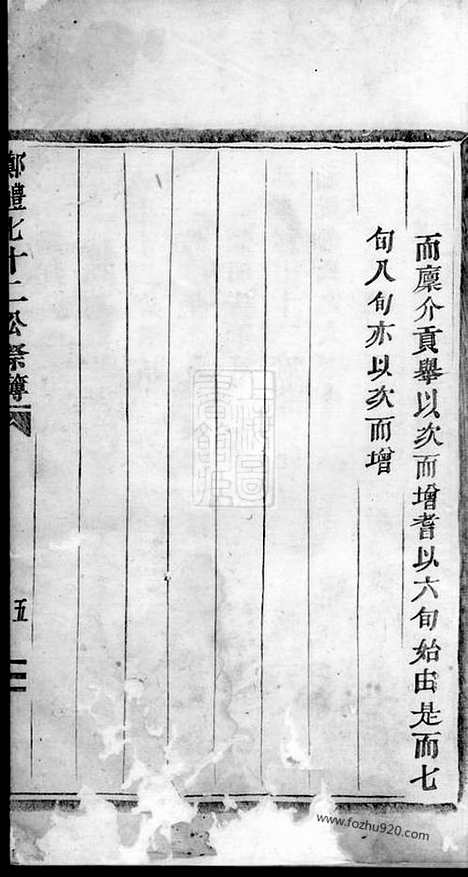 而廩介貢舉以次而增耆以六旬始由是而七
旬八旬亦以次而增
鄭禮七十二公祭簿
五
www.fozhu920.com